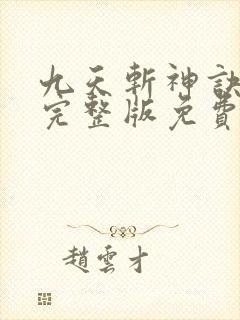 九天斬神訣
完整版免費
趙雲才